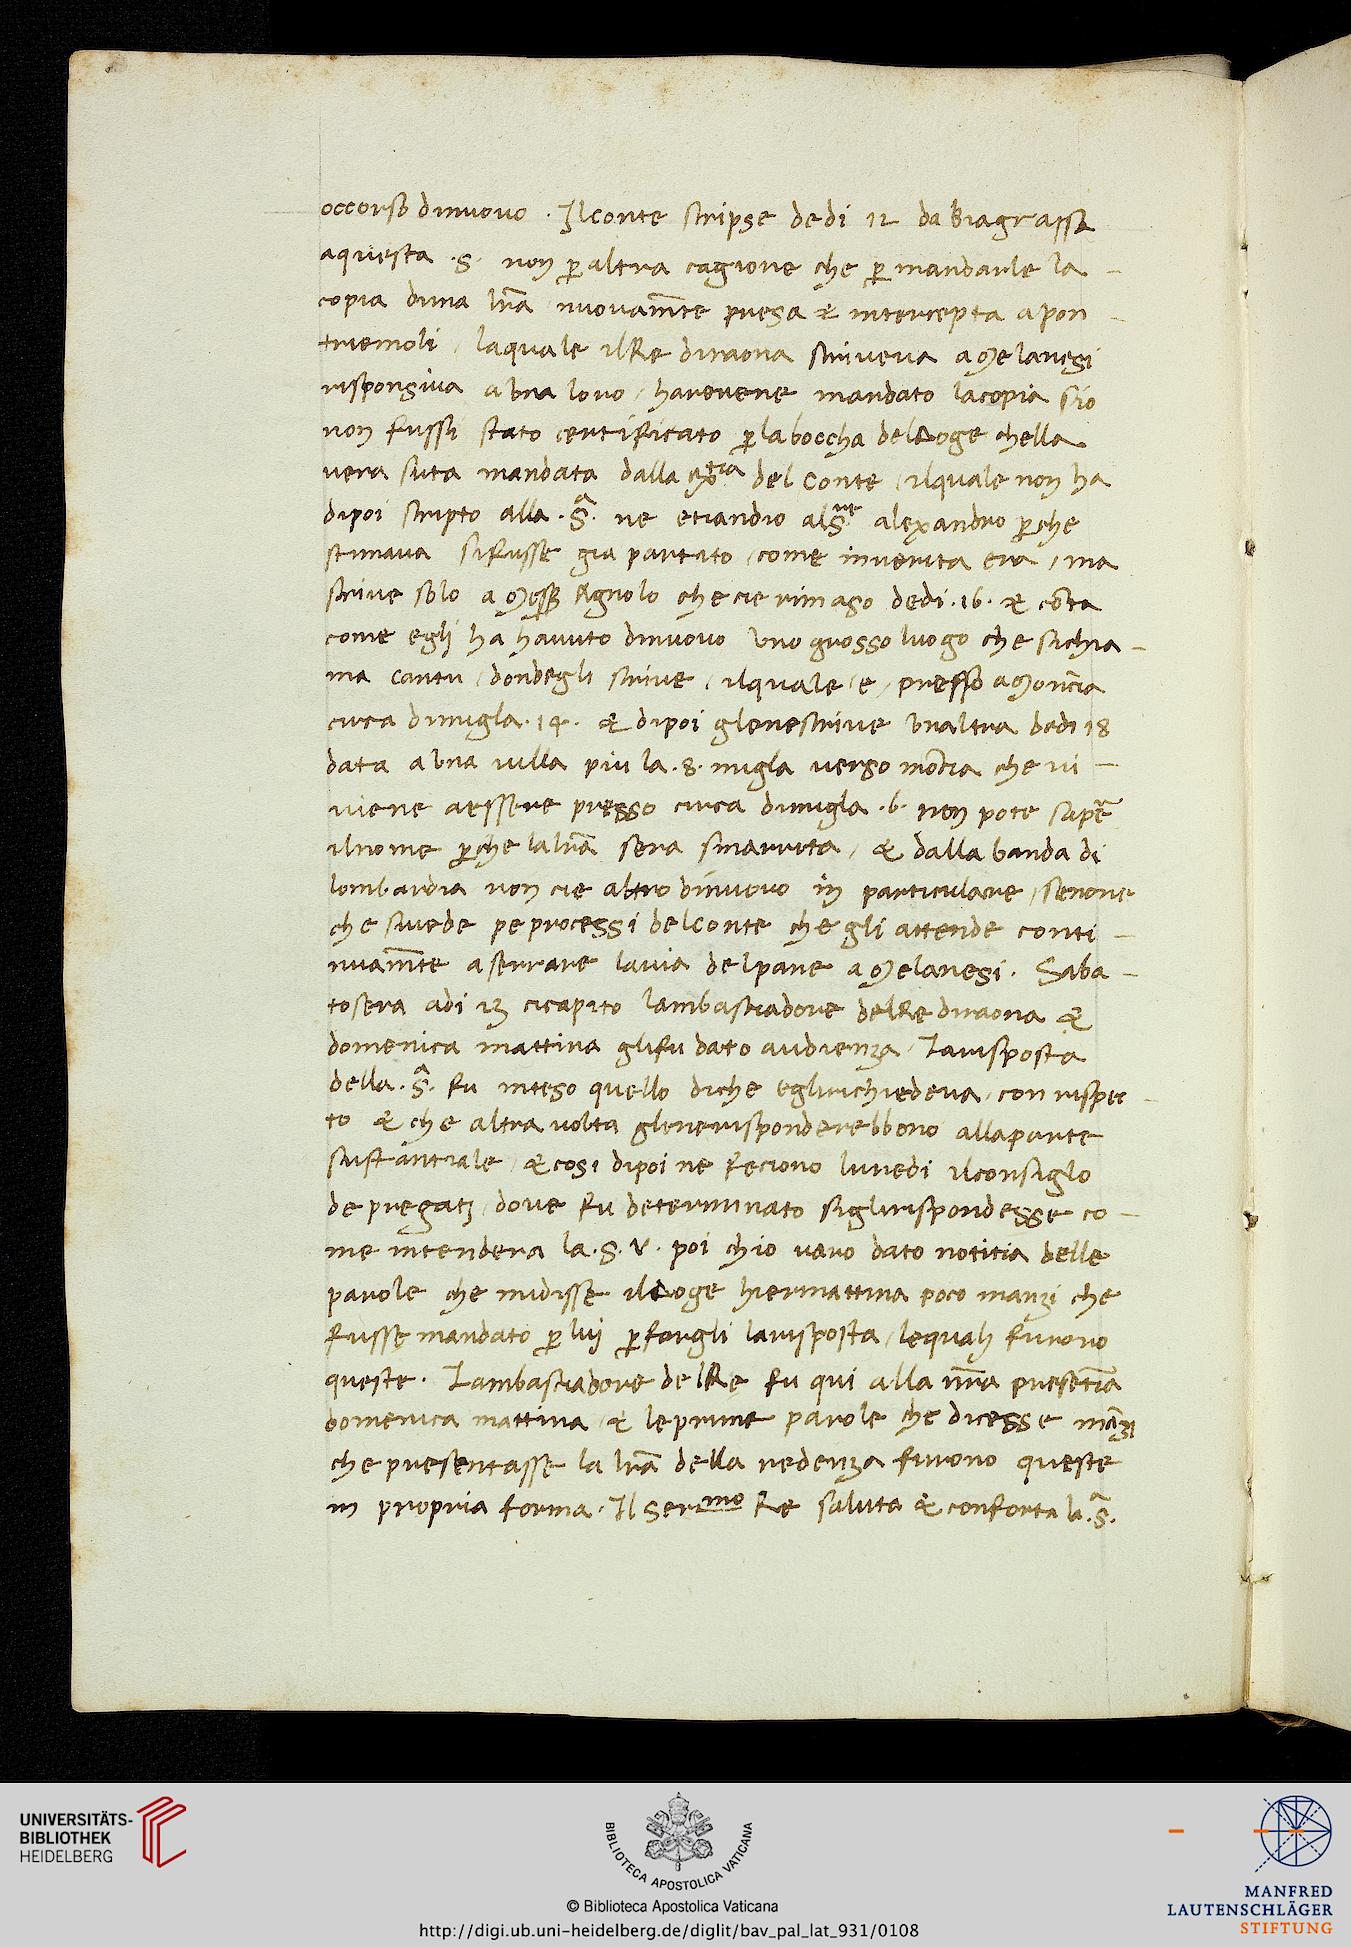 occorso dinuovo . Il conte scripse dedi 12 da Biagrassa
aquesta .S. non p altra cagione che p mandarle la –
copia duna lra nuovamte presa & intercepta apon –
triemoli / laquale ilRe diraona scriveva a Melanesi
risponsiva a una loro / haverene mandato lacopia sio
non fussi stato certificato p laboccha delDoge chella
vera suta mandata dalla del Conte / ilquale non ha
dipoi scripto alla .Sa. ne etiandio alSre alexandro pche
stimava sifusse gia partito / come inverita era / ma
scrive solo a Messer Agnolo che cie rimaso dedi .16. & cota
come egli ha havuto dinuovo uno grosso luogo che sichia –
ma Cantu / dondegli scrive / ilquale / e / presso aMoncia
circa dimigla .14. & dipoi glenescrive unaltra dedi 18
data a una villa piu la .8. migla verso mocia che vi –
viene aessere presso circa dimigla .6. non pote sapē
ilnome pche lalra sera smarrita / & dalla banda di
lombardia non cie altro dinuovo in particulare / senone
che sivede pe processi delconte che gli attende conti –
nuamte aserrare lavia delpane a Melanesi . Saba –
tosera adi 13 cicapito lambasciadore delRe diraona &
domenica mattina glifu dato audienza / Larisposta
della .Sa. fu inteso quello diche eglirichiedeva / con rispec –
to & che altra volta glenerisponderebbono allaparte
sustantiale / & cosi dipoi ne feciono lunedi ilconsiglo
de pregatj / dove fu determinato siglirispondesse co –
me intendera la .S.V. poi chio varo dato notitia delle
parole che midisse ilDoge hiermattina poco inanzi che
fusse mandato p lui p fargli larisposta / lequalj furono
queste . Lambasciadore delRe fu qui alla nra presetia
domenica mattina & leprime parole che dicesse inazi
che presentasse la lra della credenza furono queste
in propria forma . Il sermo Re saluta & conforta la .Sa.
UNIVERSITÄTS-
BIBLIOTHEK
HEIDELBERG
BIBLIOTECA APOSTOLICA VATICANA
© Biblioteca Apostolica Vaticana
http://digi.ub.uni-heidelberg.de/diglit/bav_pal_lat_931/0108
MANFRED
LAUTENSCHLÄGER
STIFTUNG